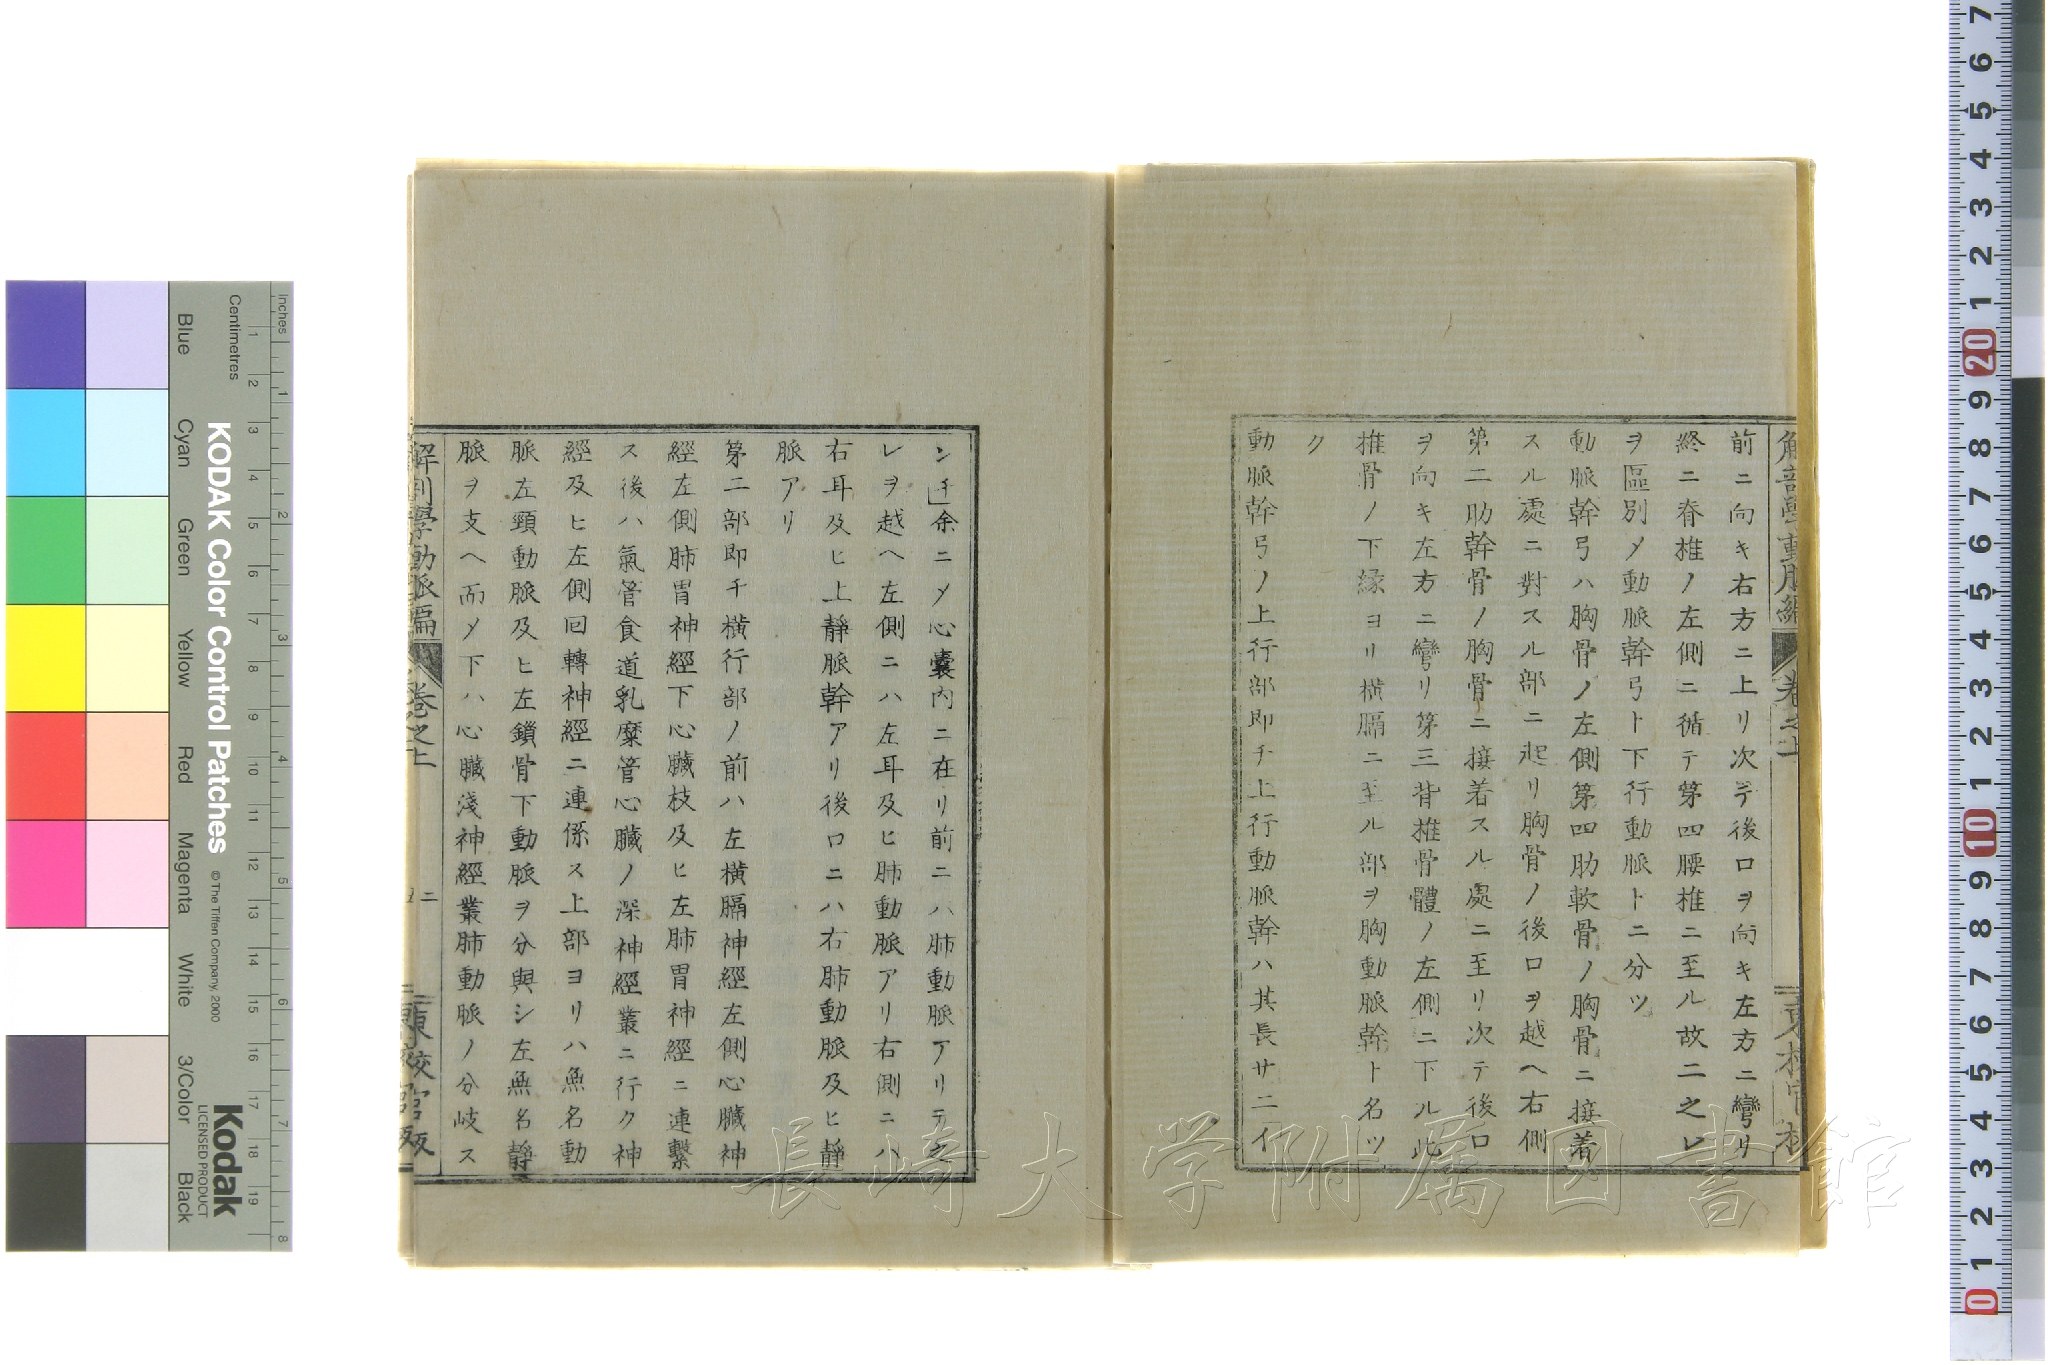 前ニ向キ右方ニ上リ次テ後ロヲ向キ左方ニ彎リ
終ニ脊椎ノ左側ニ循テ第四腰椎ニ至ル故ニ之レ
ヲ區別〆動脈幹弓ト下行動脈トニ分ツ
動脈幹弓ハ胸骨ノ左側第四肋軟骨ノ胸骨ニ接着
スル處ニ對スル部ニ起リ胸骨ノ後ロヲ越ヘ右側
第二肋幹骨ノ胸骨ニ接着スル處ニ至リ次テ後ロ
ヲ向キ左方ニ彎リ第三背椎骨體ノ左側ニ下ル此
椎骨ノ下緣ヨリ橫膈ニ至ル部ヲ胸動脈幹ト名ツ
ク
動脈幹弓ノ上行部即チ上行動脈幹ハ其長サ二イ
ンチ」余ニ〆心囊內ニ在リ前ニハ肺動脈アリテ之
レヲ越ヘ左側ニハ左耳及ヒ肺動脈アリ右側ニハ
右耳及ヒ上靜脈幹アリ後ロニハ右肺動脈及ヒ靜
脈アリ
第二部即チ橫行部ノ前ハ左橫膈神經左側心臟神
經左側肺胃神經下心臟枝及ヒ左肺胃神經ニ連繫
ス後ハ氣管食道乳糜管心臟ノ深神經叢ニ行ク神
經及ヒ左側回轉神經ニ連係ス上部ヨリハ無名動
脈左頸動脈及ヒ左鎖骨下動脈ヲ分與シ左無名靜
脈ヲ支ヘ而〆下ハ心臟淺神經叢肺動脈ノ分岐ス
解剖學動脈編 卷之上 二 東校官版
長崎大学附属図書館
KODAK Color Control Patches
© The Tiffen Company, 2000
Kodak
LICENSED PRODUCT
Inches
Centimetres
Blue Cyan Green Yellow Red Magenta White 3/Color Black